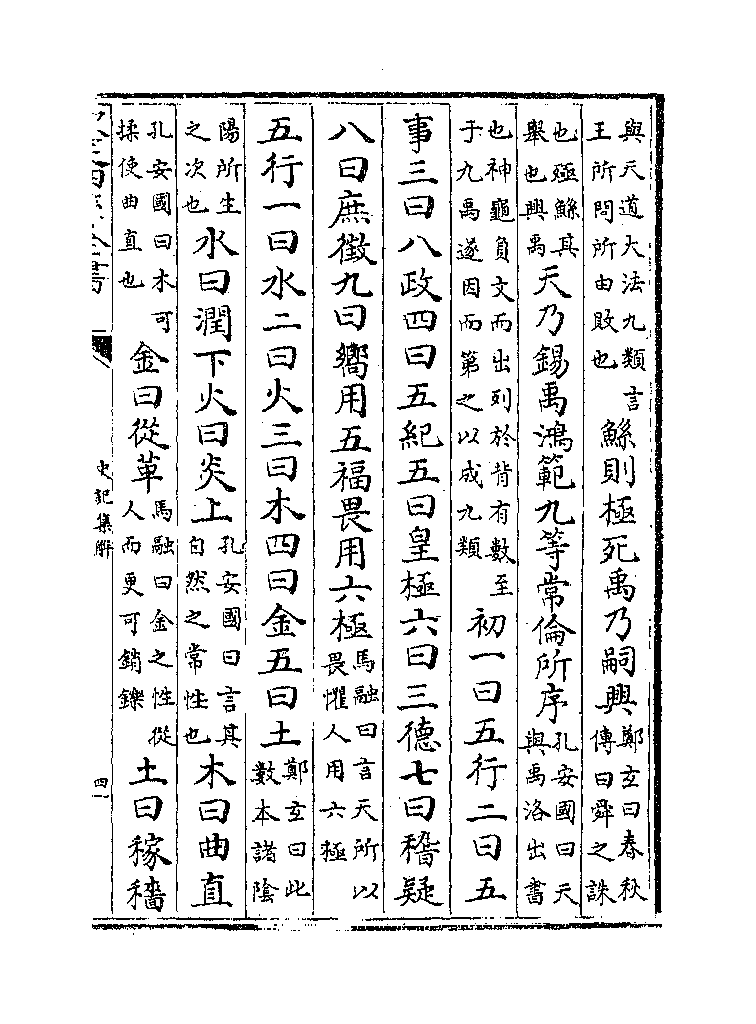 與天道大法九類言王所問所由敗也鯀則極死禹乃嗣興鄭玄曰春秋傳曰舜之誅
也殛鯀其舉也興禹天乃錫禹鴻範九等常倫所序孔安國曰天與禹洛出書
也神龜負文而出列於背有數至于九禹遂因而第之以成九類初一曰五行二曰五
事三曰八政四曰五紀五曰皇極六曰三德七曰稽疑
八曰庶徵九曰嚮用五福畏用六極馬融曰言天所以畏懼人用六極
五行一曰水二曰火三曰木四曰金五曰土鄭玄曰此數本諸陰
陽所生之次也水曰潤下火曰炎上孔安國曰言其自然之常性也木曰曲直
孔安國曰木可揉使曲直也金曰從革馬融曰金之性從人而更可銷鑠土曰稼穡
史記集解